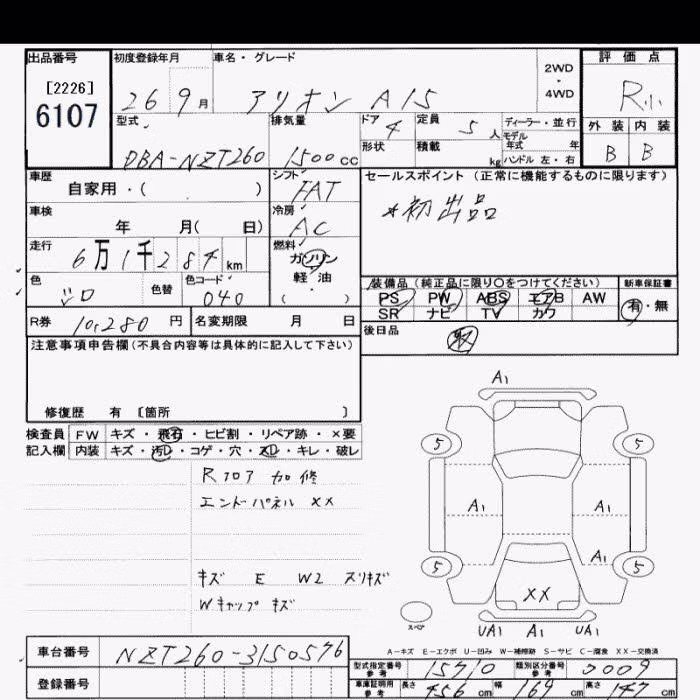 出品番号 初度登録年月 車名・グレード 2WD・4WD 評価点
[2226]
6107
26 9月 アリオン A15 R小
型式 排気量 ドア 4 定員 5人 ディーラー・並行 外装 内装
DBA-NZT260 1500cc 形状 積載 kg モデル年式 年 ハンドル 左・右 B B
車歴 自家用・( ) シフト FAT セールスポイント (正常に機能するものに限ります)
車検 年 月( 日) 冷房 AC *初出品
走行 6万1千284km 燃料 ガソリン 軽・油 ・( )
色 シロ 色替 色コード 040 装備品 (純正品に限り○をつけてください) 新車保証書
PS PW ABS エアB AW 有・無
SR ナビ TV カワ
R券 10,280円 名変期限 月 日 後日品 取
注意事項申告欄(不具合内容等は具体的に記入して下さい)
修復歴 有 [箇所 ]
検査員 FW キズ・飛石・ヒビ割・リペア跡・×要
記入欄 内装 キズ・汚レ・コゲ・穴・スレ・キレ・破レ
A1
5 5
Rフロア 加修
エンドパネル XX
A1 A1
A1
5 5
キズ E W2 スリキズ
Wキャップ キズ
XX
スペア
UA1 A1 UA1
A-キズ E-エクボ U-凹み W-補修跡 S-サビ C-腐食 XX-交換済
車台番号 NZT260-3150576
型式指定番号 参考 15710 類別区分番号 参考 0009
登録番号
車庫証明用 参考 長さ 456cm 幅 169cm 高さ 147cm